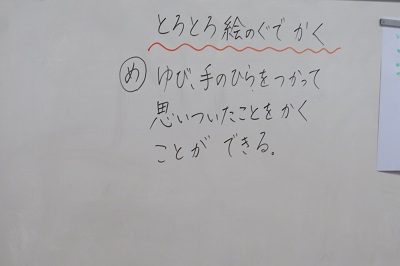 とろとろ絵のぐで かく
め ゆび、手のひらをつかって
思いついたことをかく
ことが できる。